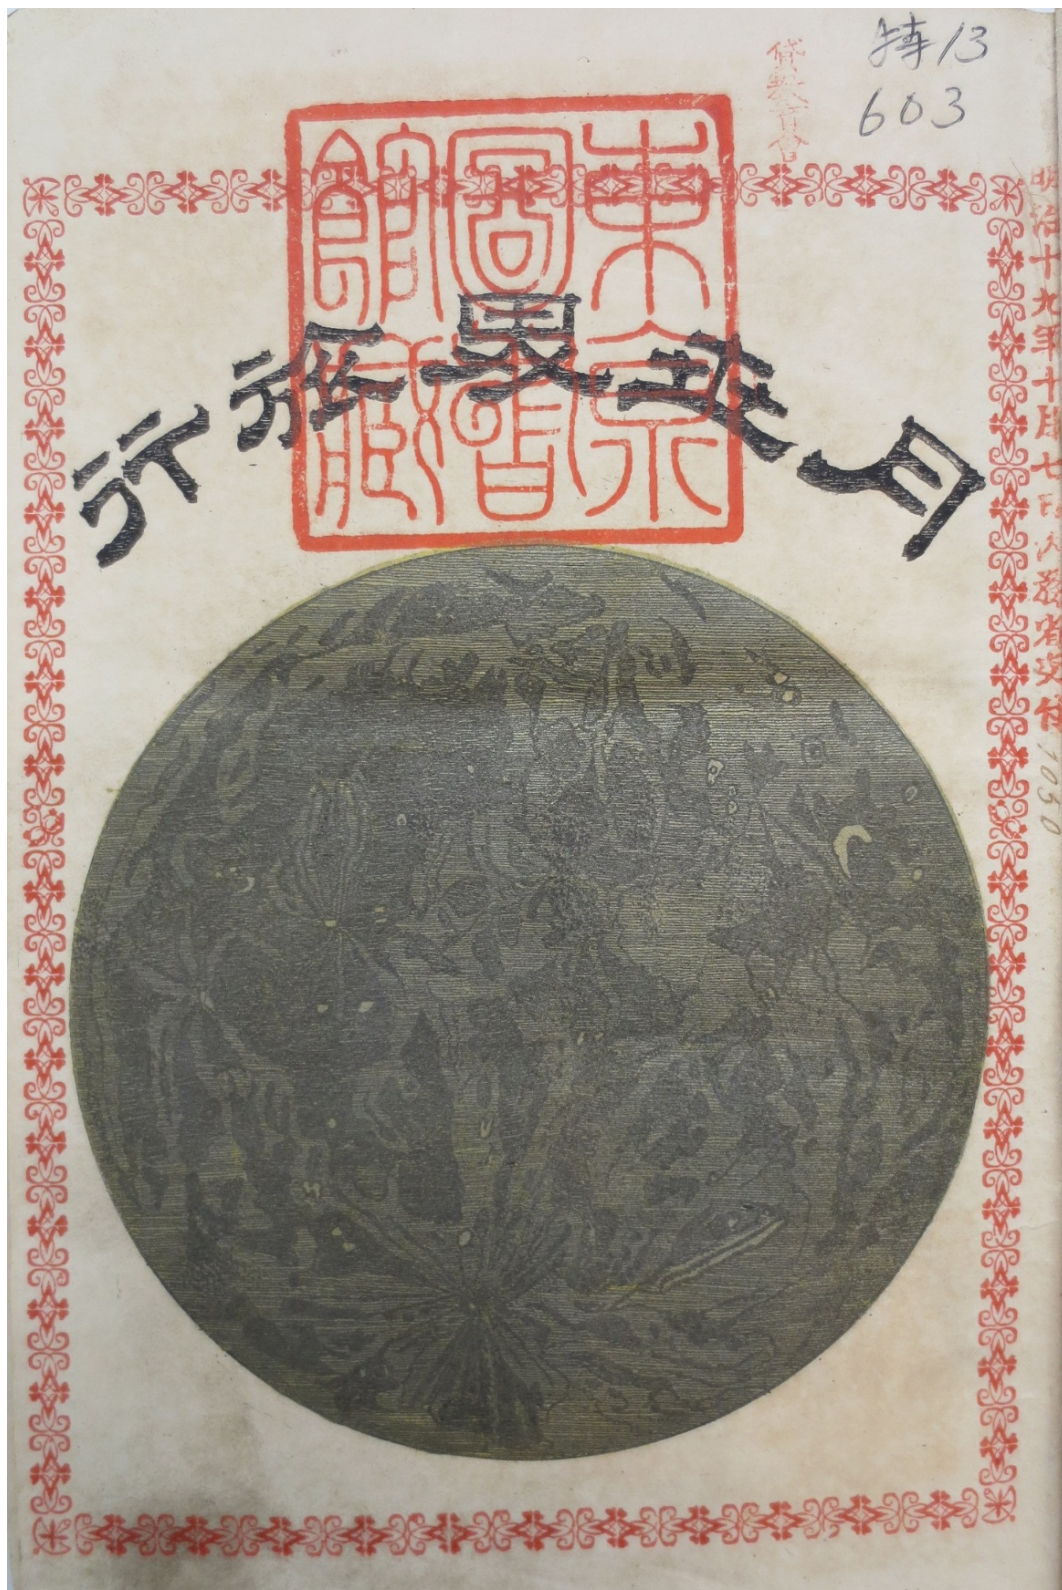 特13
603
東京
圖書
館藏
月世界旅行
明治十九年十月七日内務省交付